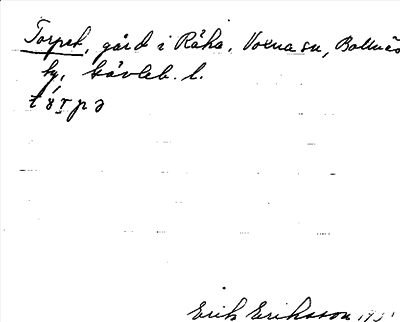 Torpet, gård i Råka, Voxna sn, Bollnäs
tg, Gävleb. l.
Erik Eriksson